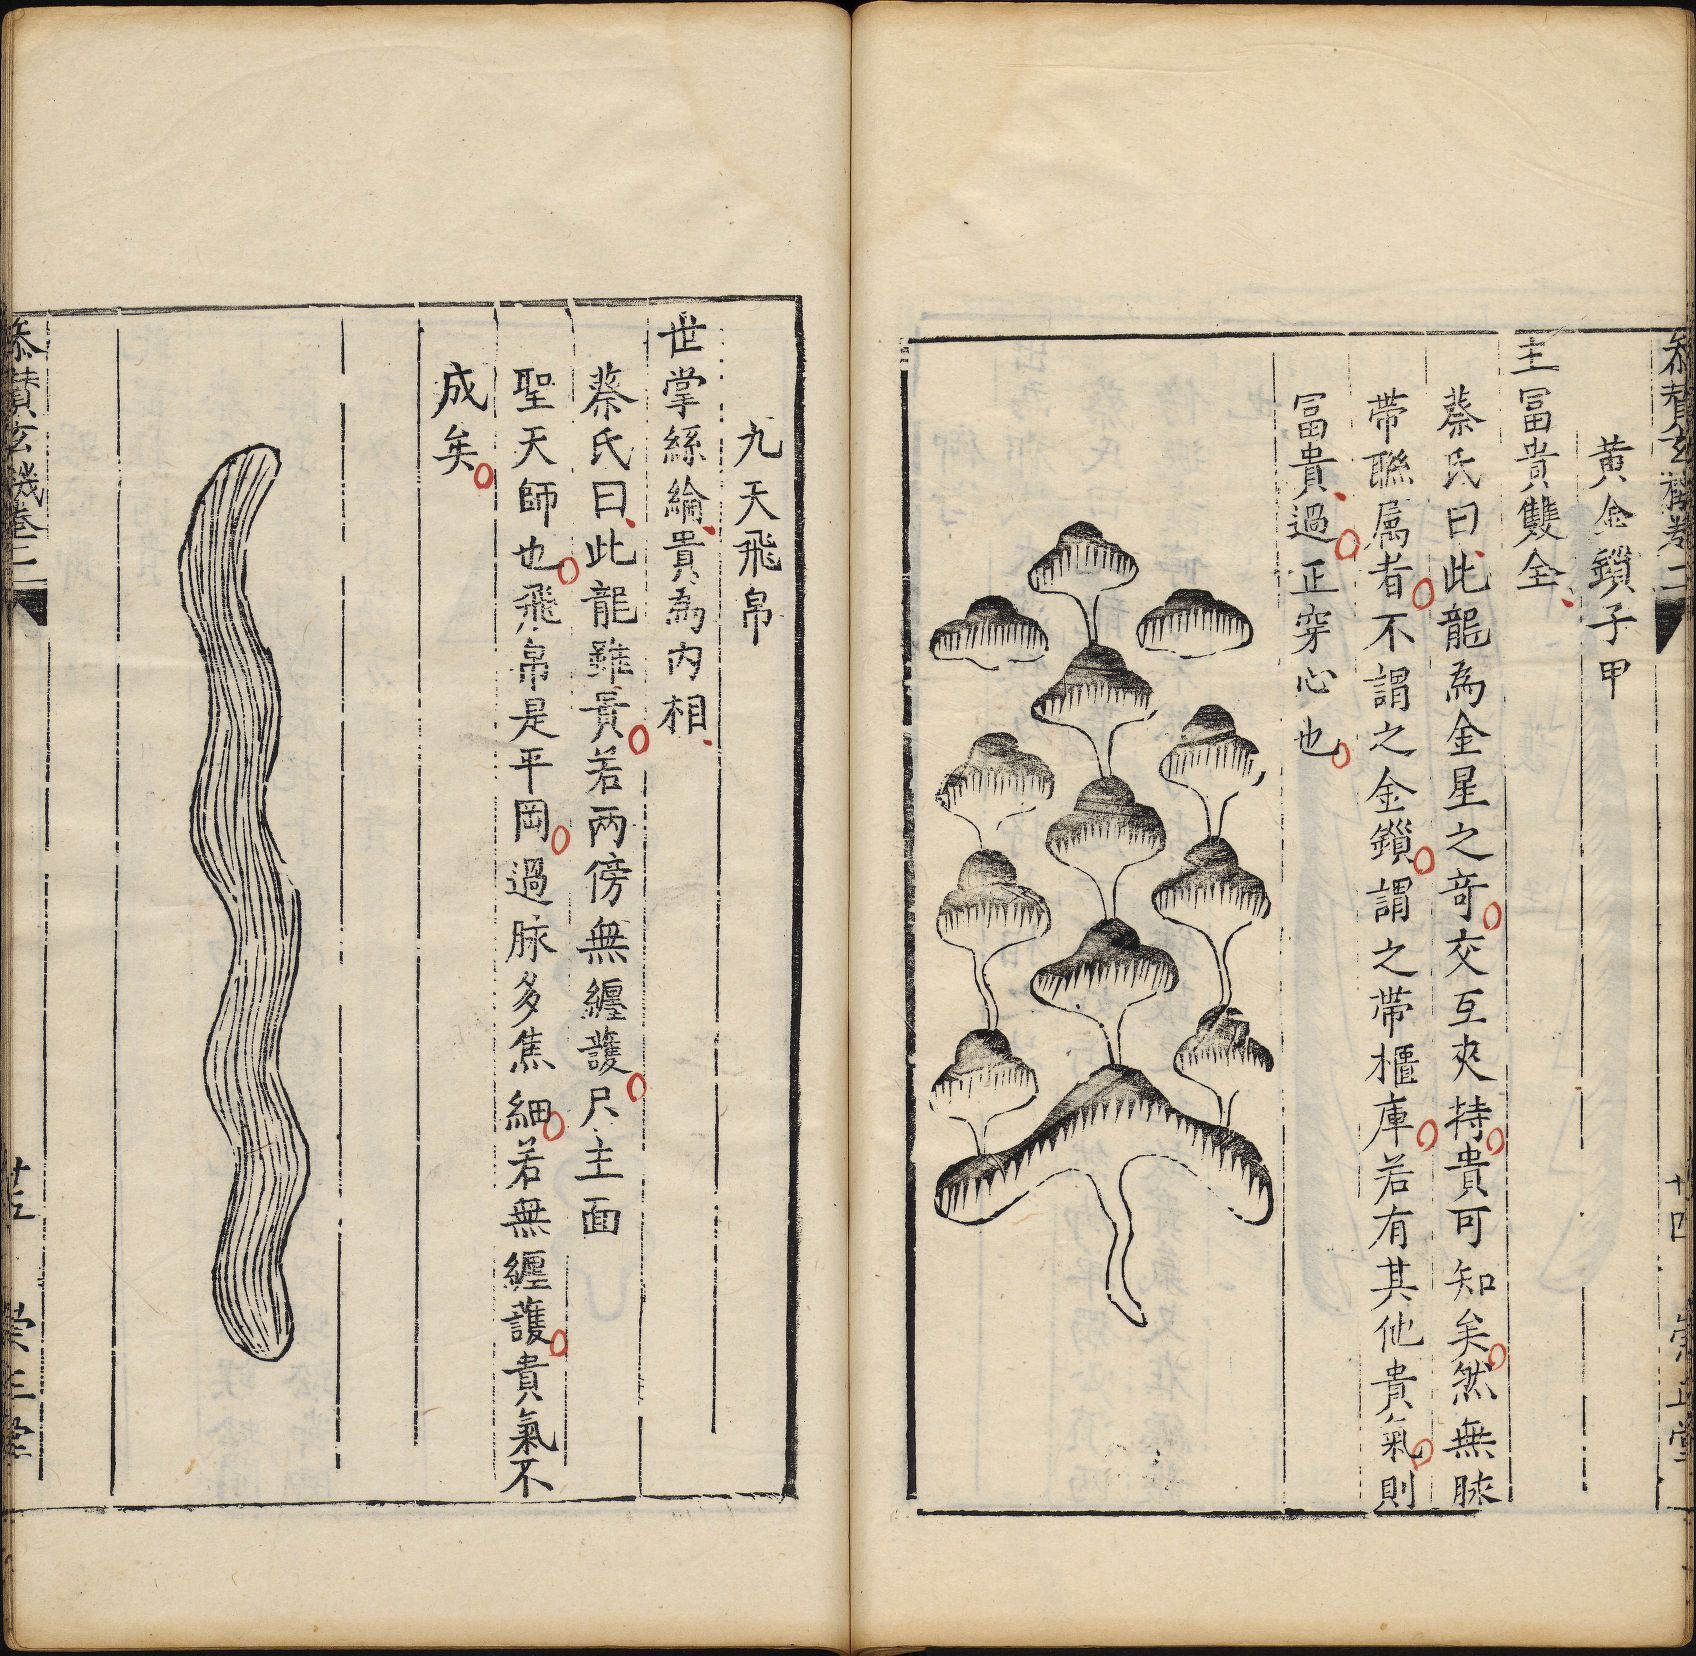 黄金鎖子甲
主冨貴雙全
蔡氏曰此龍為金星之竒交互夾持貴可知矣然無脉
帶聮属者不謂之金鎻謂之帶櫃庫若有其他貴氣則
冨貴過正穿心也
十四
九天飛帛
世掌絲綸貴為内相
蔡氏曰此龍雖貴若兩傍無纏護尺主面
聖天師也飛帛是平岡過脉多焦細若無纏護貴氣不
成矣
玄機卷二